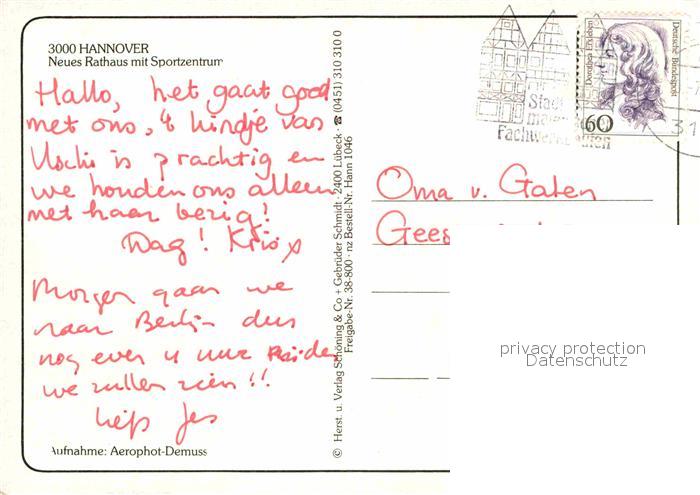 3000 HANNOVER
Neues Rathaus mit Sportzentrum
Hallo, het gaat goed
met ons, 't kindje van
Uschi is prachtig en
we houden ons alleen
met haar bezig!
Dag! Kris x
Morgen gaan we
naar Berlijn dus
nog even 4 uur rijden
we zullen zien!!
liefs Jes
Aufnahme: Aerophot-Demuss
© Herst. u. Verlag Schöning & Co + Gebrüder Schmidt · 2400 Lübeck · ☎ (0451) 310 310 0
Freigabe-Nr. 38-800 · nz Bestell-Nr. Hann 1046
Stadt
Fachwerkbauten
Dorothea Erxleben
Deutsche Bundespost
60
31
Oma v. Gaten
Gees
privacy protection
Datenschutz